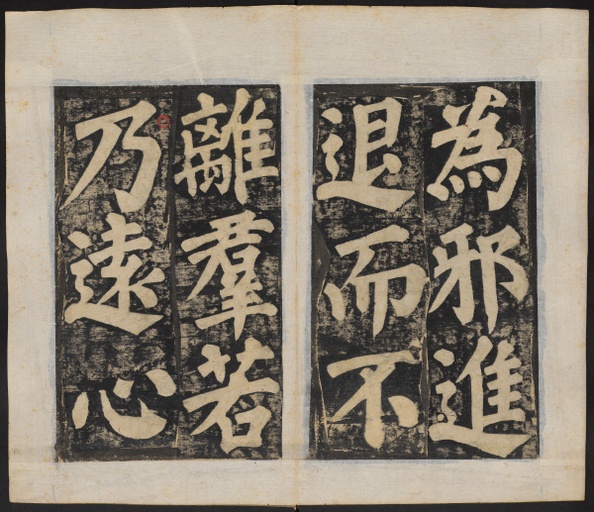 為邪進
退而不
離羣若
乃遠心